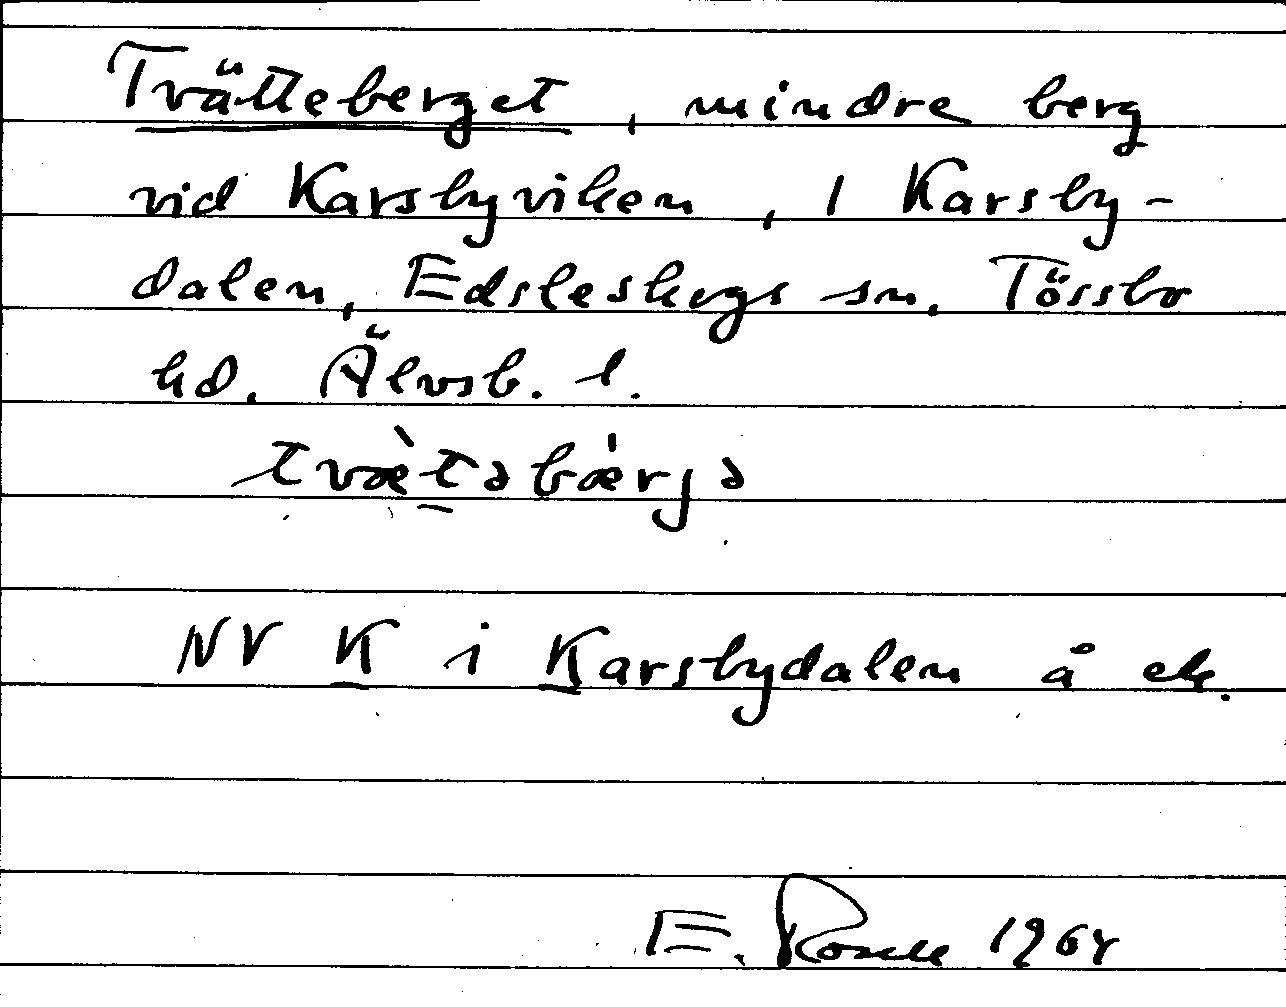 Trätteberget, mindre berg
vid Karsbyviken, i Karsby-
dalen, Edsleskogs sn. Tössbo
hd. Älvsb. l.
tvæ̀təbǽrjə
NV K i Karsbydalen å ek.
E. 1964